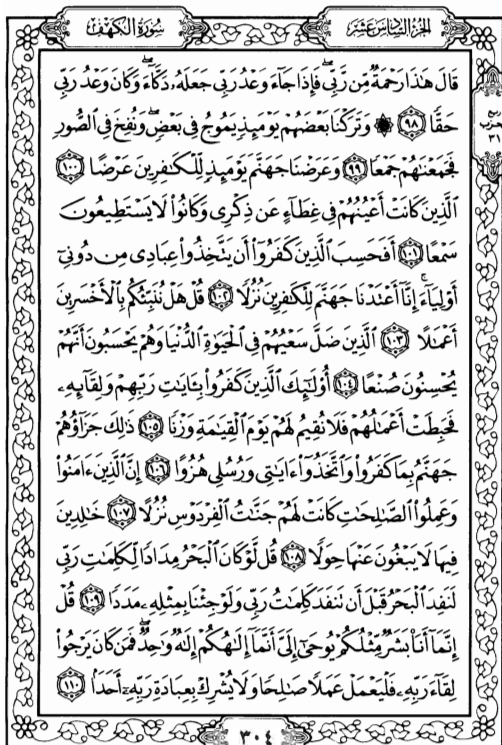 سُورَةُ الكَهْفِ
الجُزءُ السَّادِسَ عَشَرَ
قَالَ هَٰذَا رَحْمَةٌ مِّن رَّبِّى ۖ فَإِذَا جَآءَ وَعْدُ رَبِّى جَعَلَهُۥ دَكَّآءَ ۖ وَكَانَ وَعْدُ رَبِّى
حَقًّا ٩٨ ۞ وَتَرَكْنَا بَعْضَهُمْ يَوْمَئِذٍ يَمُوجُ فِى بَعْضٍ ۖ وَنُفِخَ فِى ٱلصُّورِ
ربع
حزب
٣١
فَجَمَعْنَٰهُمْ جَمْعًا ٩٩ وَعَرَضْنَا جَهَنَّمَ يَوْمَئِذٍ لِّلْكَٰفِرِينَ عَرْضًا ١٠٠
ٱلَّذِينَ كَانَتْ أَعْيُنُهُمْ فِى غِطَآءٍ عَن ذِكْرِى وَكَانُوا۟ لَا يَسْتَطِيعُونَ
سَمْعًا ١٠١ أَفَحَسِبَ ٱلَّذِينَ كَفَرُوٓا۟ أَن يَتَّخِذُوا۟ عِبَادِى مِن دُونِىٓ
أَوْلِيَآءَ ۚ إِنَّآ أَعْتَدْنَا جَهَنَّمَ لِلْكَٰفِرِينَ نُزُلًا ١٠٢ قُلْ هَلْ نُنَبِّئُكُم بِٱلْأَخْسَرِينَ
أَعْمَٰلًا ١٠٣ ٱلَّذِينَ ضَلَّ سَعْيُهُمْ فِى ٱلْحَيَوٰةِ ٱلدُّنْيَا وَهُمْ يَحْسَبُونَ أَنَّهُمْ
يُحْسِنُونَ صُنْعًا ١٠٤ أُو۟لَٰٓئِكَ ٱلَّذِينَ كَفَرُوا۟ بِـَٔايَٰتِ رَبِّهِمْ وَلِقَآئِهِۦ
فَحَبِطَتْ أَعْمَٰلُهُمْ فَلَا نُقِيمُ لَهُمْ يَوْمَ ٱلْقِيَٰمَةِ وَزْنًا ١٠٥ ذَٰلِكَ جَزَآؤُهُمْ
جَهَنَّمُ بِمَا كَفَرُوا۟ وَٱتَّخَذُوٓا۟ ءَايَٰتِى وَرُسُلِى هُزُوًا ١٠٦ إِنَّ ٱلَّذِينَ ءَامَنُوا۟
وَعَمِلُوا۟ ٱلصَّٰلِحَٰتِ كَانَتْ لَهُمْ جَنَّٰتُ ٱلْفِرْدَوْسِ نُزُلًا ١٠٧ خَٰلِدِينَ
فِيهَا لَا يَبْغُونَ عَنْهَا حِوَلًا ١٠٨ قُل لَّوْ كَانَ ٱلْبَحْرُ مِدَادًا لِّكَلِمَٰتِ رَبِّى
لَنَفِدَ ٱلْبَحْرُ قَبْلَ أَن تَنفَدَ كَلِمَٰتُ رَبِّى وَلَوْ جِئْنَا بِمِثْلِهِۦ مَدَدًا ١٠٩ قُلْ
إِنَّمَآ أَنَا۠ بَشَرٌ مِّثْلُكُمْ يُوحَىٰٓ إِلَىَّ أَنَّمَآ إِلَٰهُكُمْ إِلَٰهٌ وَٰحِدٌ ۖ فَمَن كَانَ يَرْجُوا۟
لِقَآءَ رَبِّهِۦ فَلْيَعْمَلْ عَمَلًا صَٰلِحًا وَلَا يُشْرِكْ بِعِبَادَةِ رَبِّهِۦٓ أَحَدًۢا ١١٠
٣٠٤